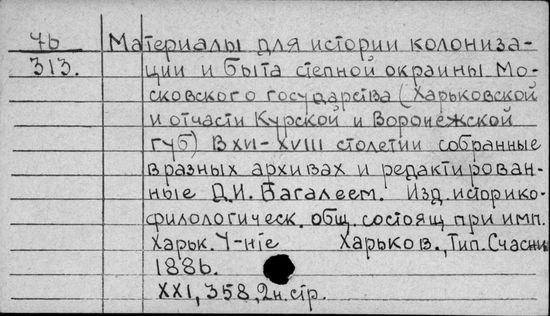 7б Материалы для истории колониза-
313. ции и быта степной окраины Мо-
сковского государства (Харьковской
и отчасти Курской и Воронежской
губ) В XVI-XVIII столетии собранные
в разных архивах и редактирован-
ные Д.И. Багалеем. Изд. историко-
филологическ. общ. состоящ при имп.
Харьк. У-нiе Харьков., Тип. Счасни
1886.
XXI, 358, 2н. стр.